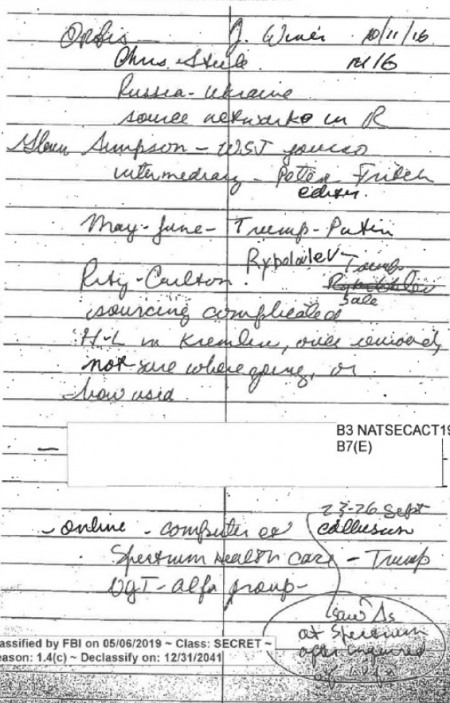 Orbis J. Winer 10/11/16
Chris Steele MI6
Russia-Ukraine
source networks in R
Glenn Simpson - WSJ
intermediary - Peter Fritch
editor.
May-June - Trump-Putin
Rypolovlev - Trump
Ritz-Carlton.
Sale
sourcing complicated
H-L in Kremlin, once removed,
not sure where going, or
how used
B3 NATSECACT19
B7(E)
23-26 Sept
- online - computer co collusion
Spectrum Health Care - Trump
Org - alfa group -
saw As
at Spectrum
after inquired
assified by FBI on 05/06/2019 ~ Class: SECRET ~
eason: 1.4(c) ~ Declassify on: 12/31/2041